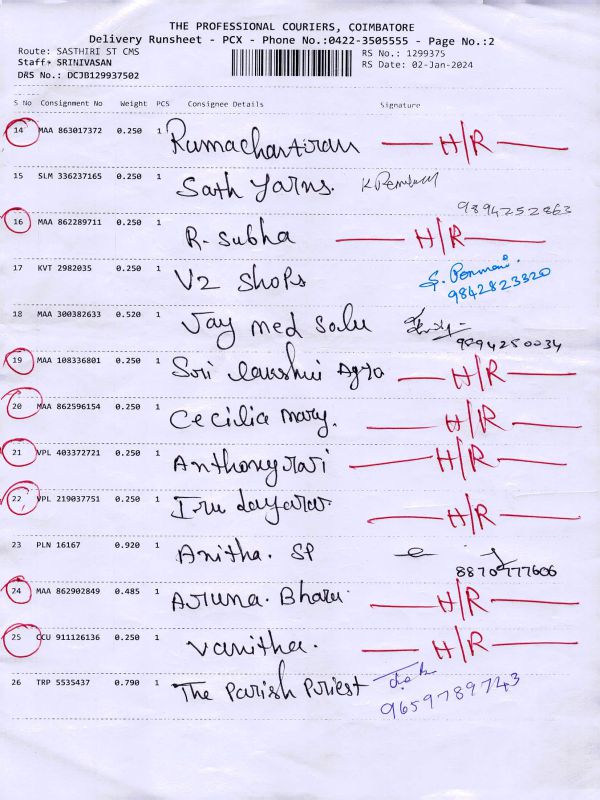 THE PROFESSIONAL COURIERS, COIMBATORE
Delivery Runsheet - PCX - Phone No.:0422-3505555 - Page No.:2
Route: SASTHIRI ST CMS RS No.: 1299375
Staff: SRINIVASAN RS Date: 02-Jan-2024
DRS No.: DCJB129937502
S No Consignment No Weight PCS Consignee Details Signature
14 MAA 863017372 0.250 1 H/R
15 SLM 336237165 0.250 1 Sath Yarns.
9894252863
16 MAA 862289711 0.250 1 R. Subha H/R
17 KVT 2982035 0.250 1 V2 Shops
9842823320
18 MAA 300382633 0.520 1 Jay med
9894250034
19 MAA 108336801 0.250 1 Sri H/R
20 MAA 862596154 0.250 1 Cecilia mary. H/R
21 VPL 403372721 0.250 1 Anthonyraj H/R
22 VPL 219037751 0.250 1 H/R
23 PLN 16167 0.920 1 Anitha. SP
8870777606
24 MAA 862902849 0.485 1 Aruna. H/R
25 CCU 911126136 0.250 1 Vanitha. H/R
26 TRP 5535437 0.790 1 The Parish Priest
9659789743